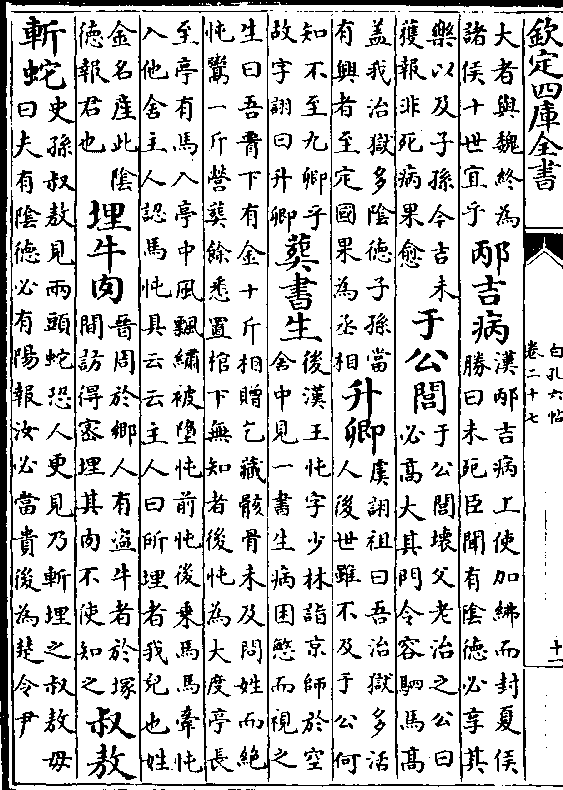 欽定四庫全書
白孔六帖
卷二十七
十一
大者與魏終為
諸侯十世宜乎
邴吉病
漢邴吉病上使加紼而封夏侯
勝曰未死臣聞有陰德必享其
樂以及子孫今吉未
獲報非死病果愈
于公閭
于公閭壞父老治之公曰
必高大其門令容駟馬高
盖我治獄多陰德子孫當
有興者至定國果為丞相
升卿
虞詡祖曰吾治獄多活
人後世雖不及于公何
知不至九卿乎
故字詡曰升卿
葬書生
後漢王忳字少林詣京師於空
舍中見一書生病困愍而視之
生曰吾腰下有金十斤相贈乞藏骸骨未及問姓而絕
忳鬻一斤營葬餘悉置棺下無知者後忳為大度亭長
至亭有馬入亭中風飄繡被墮忳前忳後乗馬馬牽忳
入他舍主人認馬忳具云云主人曰所埋者我兒也姓
金名產此陰
德報君也
埋牛肉
晉周於鄉人有盗牛者於塚
間訪得密埋其肉不使知之
叔敖
斬蛇
史孫叔敖見兩頭蛇恐人更見乃斬埋之叔敖毋
曰夫有陰德必有陽報汝必當貴後為楚令尹